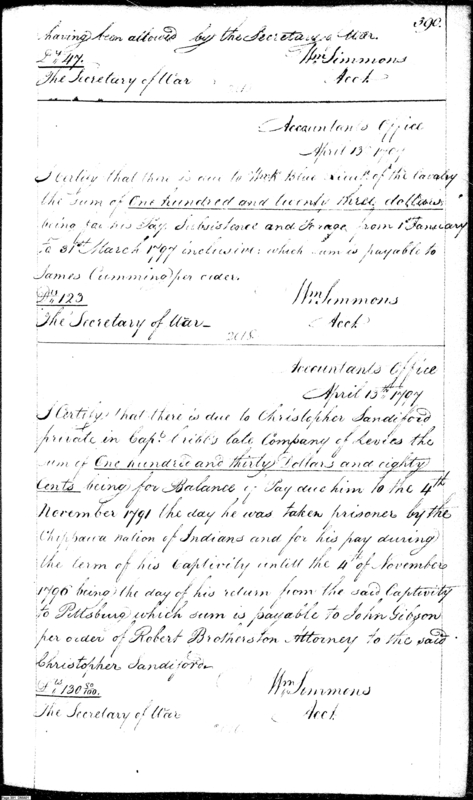 390.
having been allowed by the Secretary of War.
Ds 47. Wm Simmons
The Secretary of War Acct
Accountants Office
April 13th 1797
I Certify that there is due to Blue Lieut. of the Cavalry
the sum of One hundred and twenty three dollars
being for his Pay, Subsistence and Forage from 1st January
to 31st March 1797 inclusive: which sum is payable to
James Cumming per order.
Drs 123 Wm Simmons
The Secretary of War Acct
2018
Accountants Office
April 13th 1797
I Certify that there is due to Christopher Sandiford
private in Capt. late Company of Levies the
sum of One hundred and thirty Dollars and eighty
Cents being for Balance of Pay due him to the 4th
November 1791 the day he was taken prisoner by the
Chippawa nation of Indians and for his pay during
the term of his Captivity untill the 4th of November
being the day of his return from the said Captivity
to Pittsburg which sum is payable to John Gibson
per order of Robert Brotherston Attorney to the said
Christopher Sandiford
Ds 130 80/100. Wm Simmons
The Secretary of War Acct